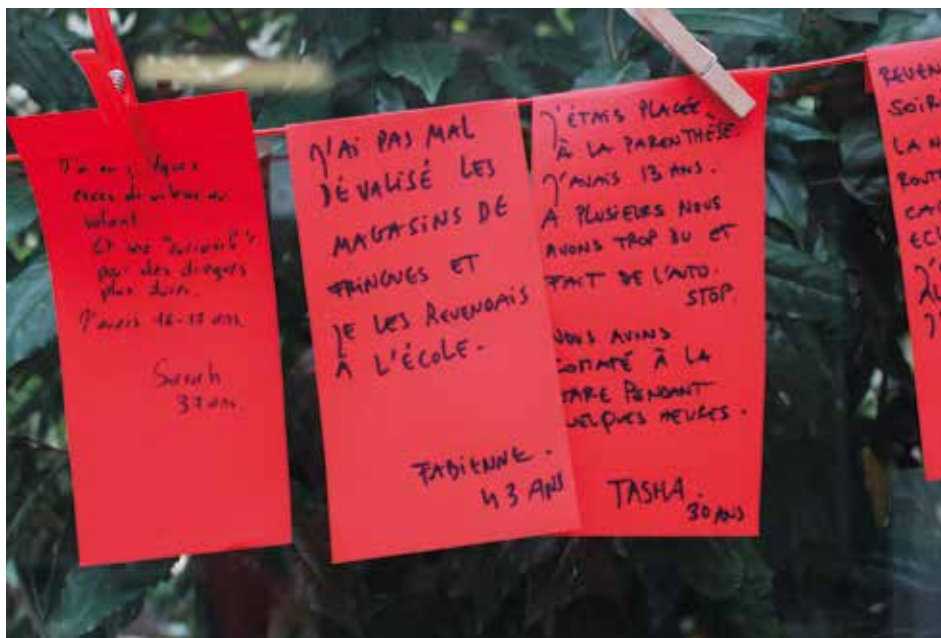 J'ai eu quelques
excès de vitesse au
volant
Et une "curiosité"
pour des drogues
plus dures.
J'avais 16-17 ans.
Sarah
37 ans.
J'AI PAS MAL
DÉVALISÉ LES
MAGASINS DE
FRINGUES ET
JE LES REVENDAIS
À L'ÉCOLE.
FABIENNE.
43 ANS
J'ÉTAIS PLACÉE
À LA PARENTHÈSE.
J'AVAIS 13 ANS.
A PLUSIEURS NOUS
AVONS TROP BU ET
FAIT DE L'AUTO.
STOP.
NOUS AVIONS
COMATÉ À LA
GARE PENDANT
QUELQUES HEURES.
TASHA.
30 ANS
SOIR
LA N
ROUT